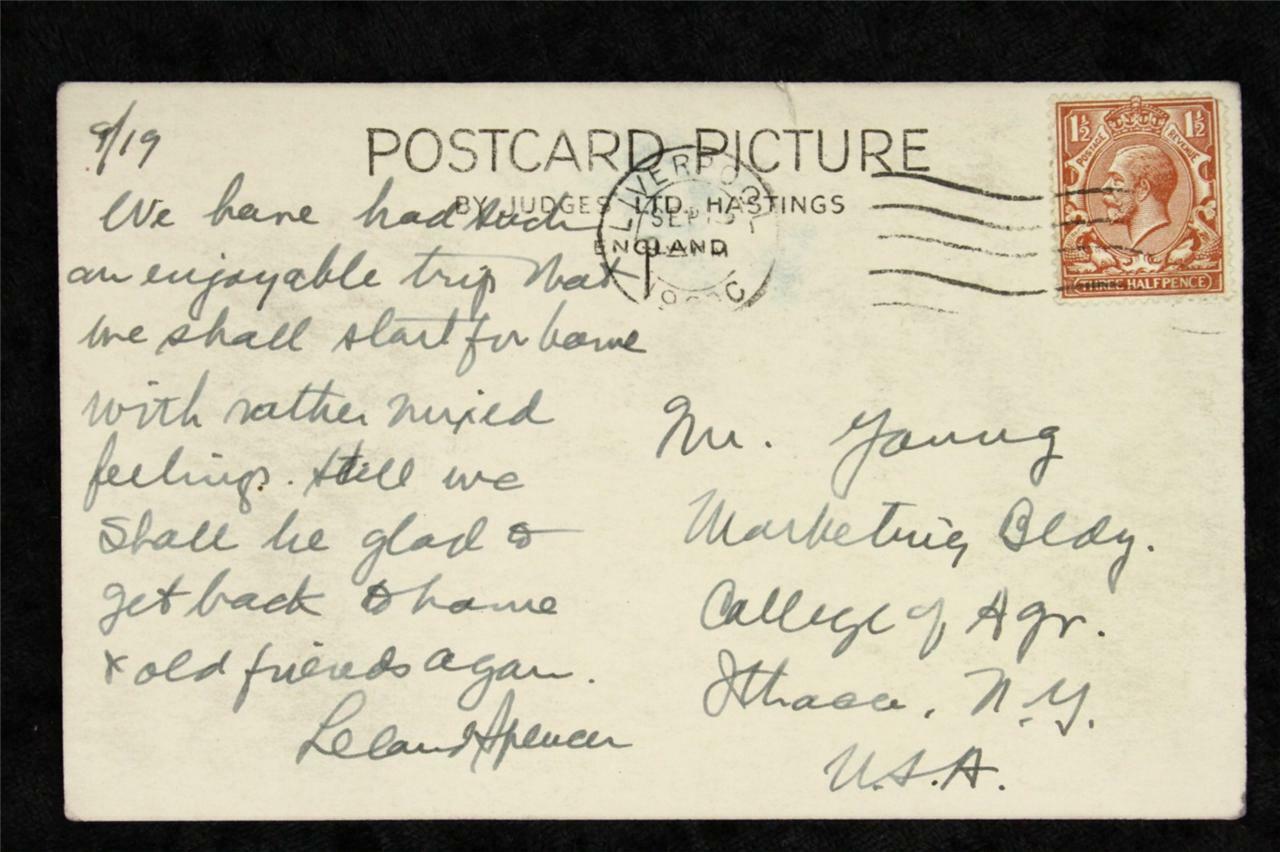 9/19
POSTCARD PICTURE
BY JUDGES LTD, HASTINGS
ENGLAND
LIVERPOOL
SEP
1½ 1½
POSTAGE REVENUE
THREE HALFPENCE
We have had such
an enjoyable trip that
we shall start for home
with rather mixed
feelings. Still we
shall be glad to
get back to home
& old friends again.
Leland Spencer
Mr. Young
Marketing Bldg.
College of Agr.
Ithaca, N.Y.
U.S.A.